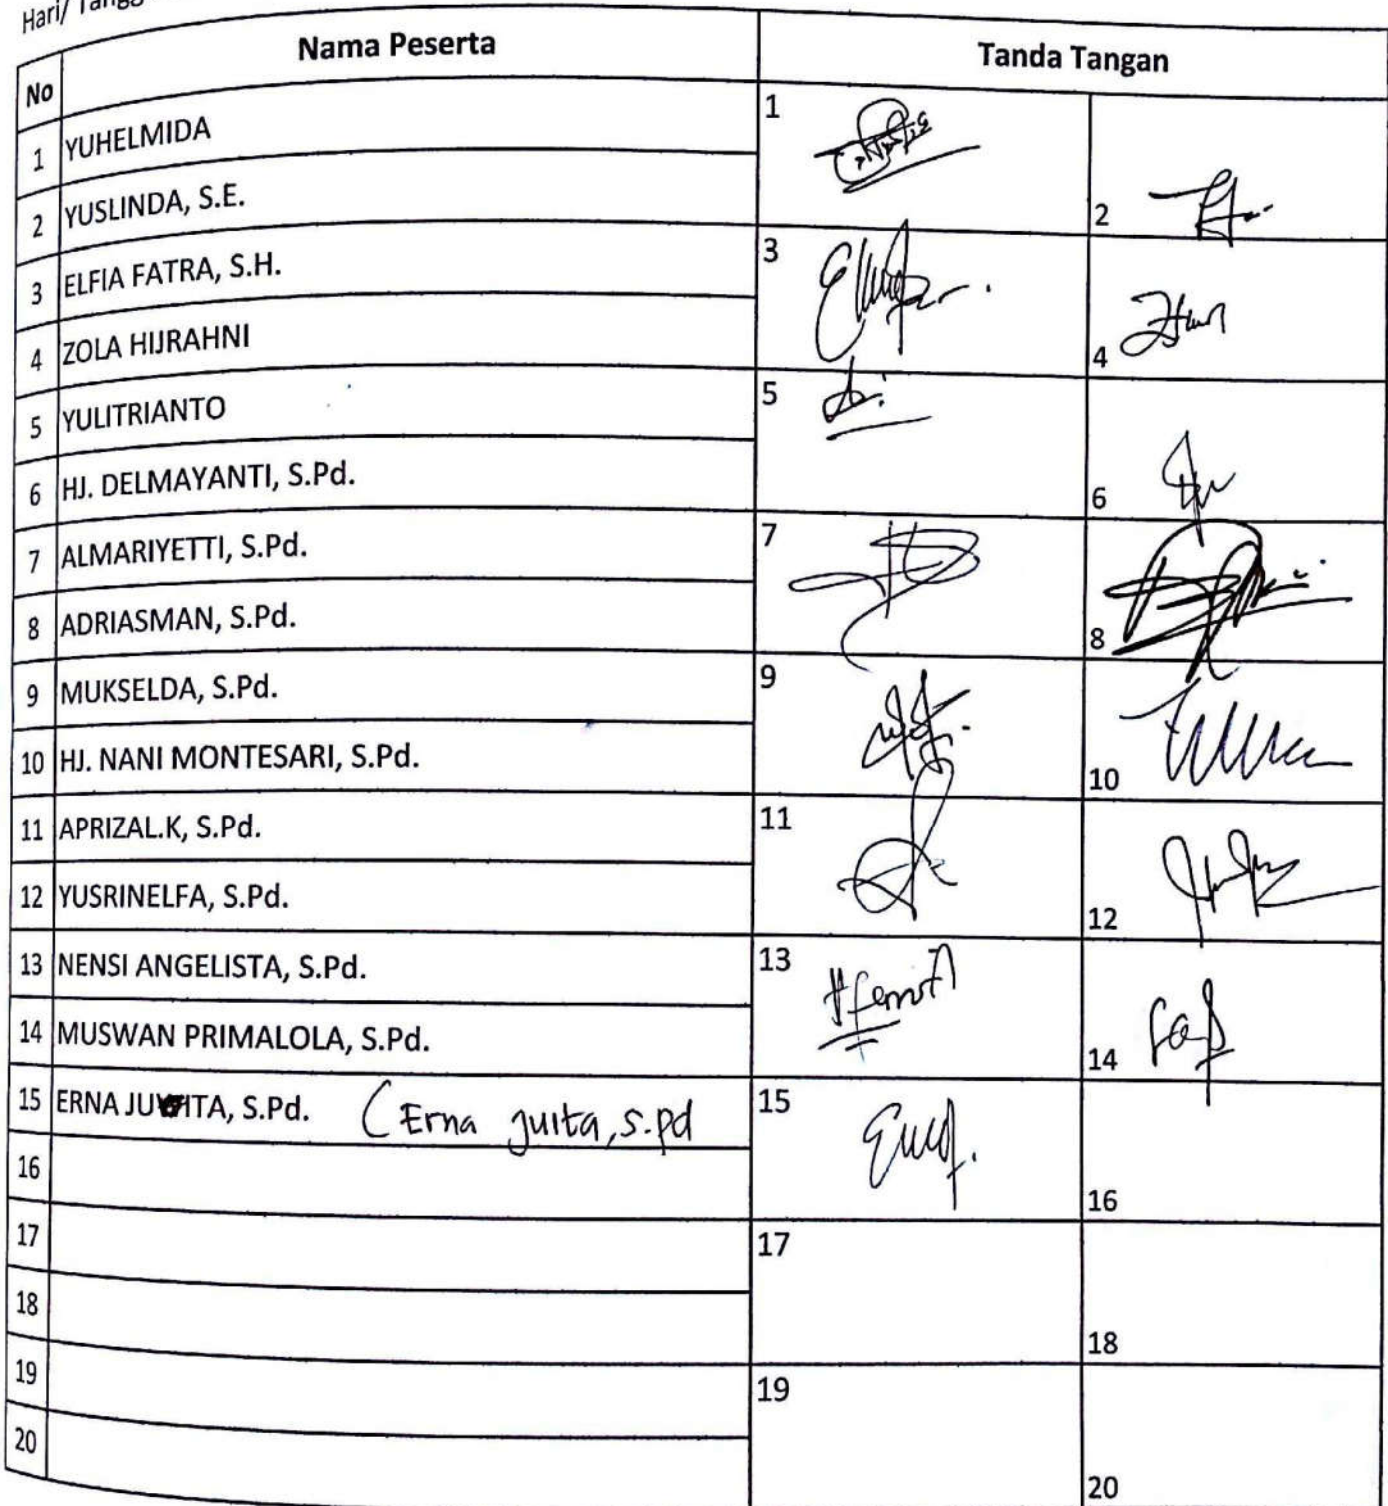 Hari/
No Nama Peserta Tanda Tangan
1 YUHELMIDA 1
2 YUSLINDA, S.E. 2
3 ELFIA FATRA, S.H. 3
4 ZOLA HIJRAHNI 4
5 YULITRIANTO 5
6 HJ. DELMAYANTI, S.Pd. 6
7 ALMARIYETTI, S.Pd. 7
8 ADRIASMAN, S.Pd. 8
9 MUKSELDA, S.Pd. 9
10 HJ. NANI MONTESARI, S.Pd. 10
11 APRIZAL.K, S.Pd. 11
12 YUSRINELFA, S.Pd. 12
13 NENSI ANGELISTA, S.Pd. 13
14 MUSWAN PRIMALOLA, S.Pd. 14
15 ERNA JUWITA, S.Pd. (Erna juita, s.pd 15
16 16
17 17
18 18
19 19
20 20